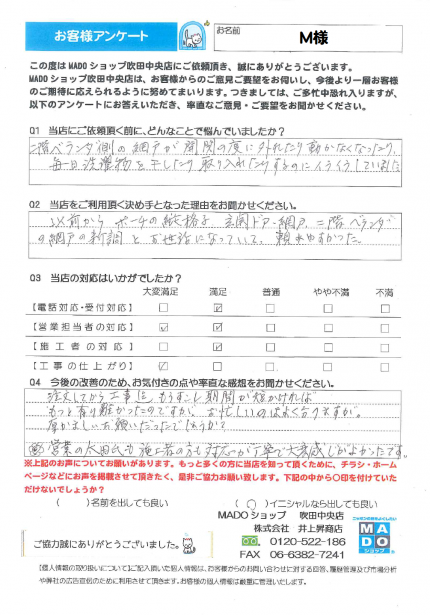 お客様アンケート
お名前
M様
この度はMADOショップ吹田中央店にご依頼頂き、誠にありがとうございます。
MADOショップ吹田中央店は、お客様からのご意見ご要望をお伺いし、今後より一層お客様
のご期待に応えられるように努めてまいります。つきましては、ご多忙中恐れ入りますが、
以下のアンケートにお答えいただき、率直なご意見・ご要望をお聞かせください。
Q1 当店にご依頼頂く前に、どんなことで悩んでいましたか?
二階ベランダ側の網戸が開閉の度に外れたり動かなくなったり、
毎日洗濯物を干したり取り入れたりするのにイライラしていました
Q2 当店をご利用頂く決め手となった理由をお聞かせください。
以前から ポーチの縦格子、玄関ドア・網戸、二階ベランダ
の網戸の新調とお世話になっていて、頼みやすかった。
Q3 当店の対応はいかがでしたか?
大変満足 満足 普通 やや不満 不満
【電話対応・受付対応】 □ ☑ □ □ □
【営業担当者の対応】 ☑ ☑ □ □ □
【施工者の対応】 □ ☑ □ □ □
【工事の仕上がり】 ☑ □ □ □ □
Q4 今後の改善のため、お気付きの点や率直な感想をお聞かせください。
注文してから工事迄、もう少し期間が短かければ
もっと有り難かったのですが、お忙しいのはよく分りますが。
厚かましいお願いだったでしょうか?
営業の太田氏も施工者の方も対応が丁寧で大変感じがよかったです。
※上記のお声についてお願いがあります。もっと多くの方に当店を知って頂くために、チラシ・ホーム
ページなどにお声を掲載させて頂きたく、是非ご協力お願い致します。下記の中から〇印を付けていた
だけないでしょうか?
( )名前を出しても良い (〇)イニシャルなら出しても良い
MADOショップ 吹田中央店
株式会社 井上昇商店
0120-522-186
FAX 06-6382-7241
ご協力誠にありがとうございました。
MADO
ショップ
【個人情報の取り扱いについて】ご記入頂いた個人情報は、お客様からのお問い合わせに対する回答、履歴管理及び市場分析
や弊社の広告宣伝のために使用させて頂きます。お客様の個人情報は厳重に管理いたします。